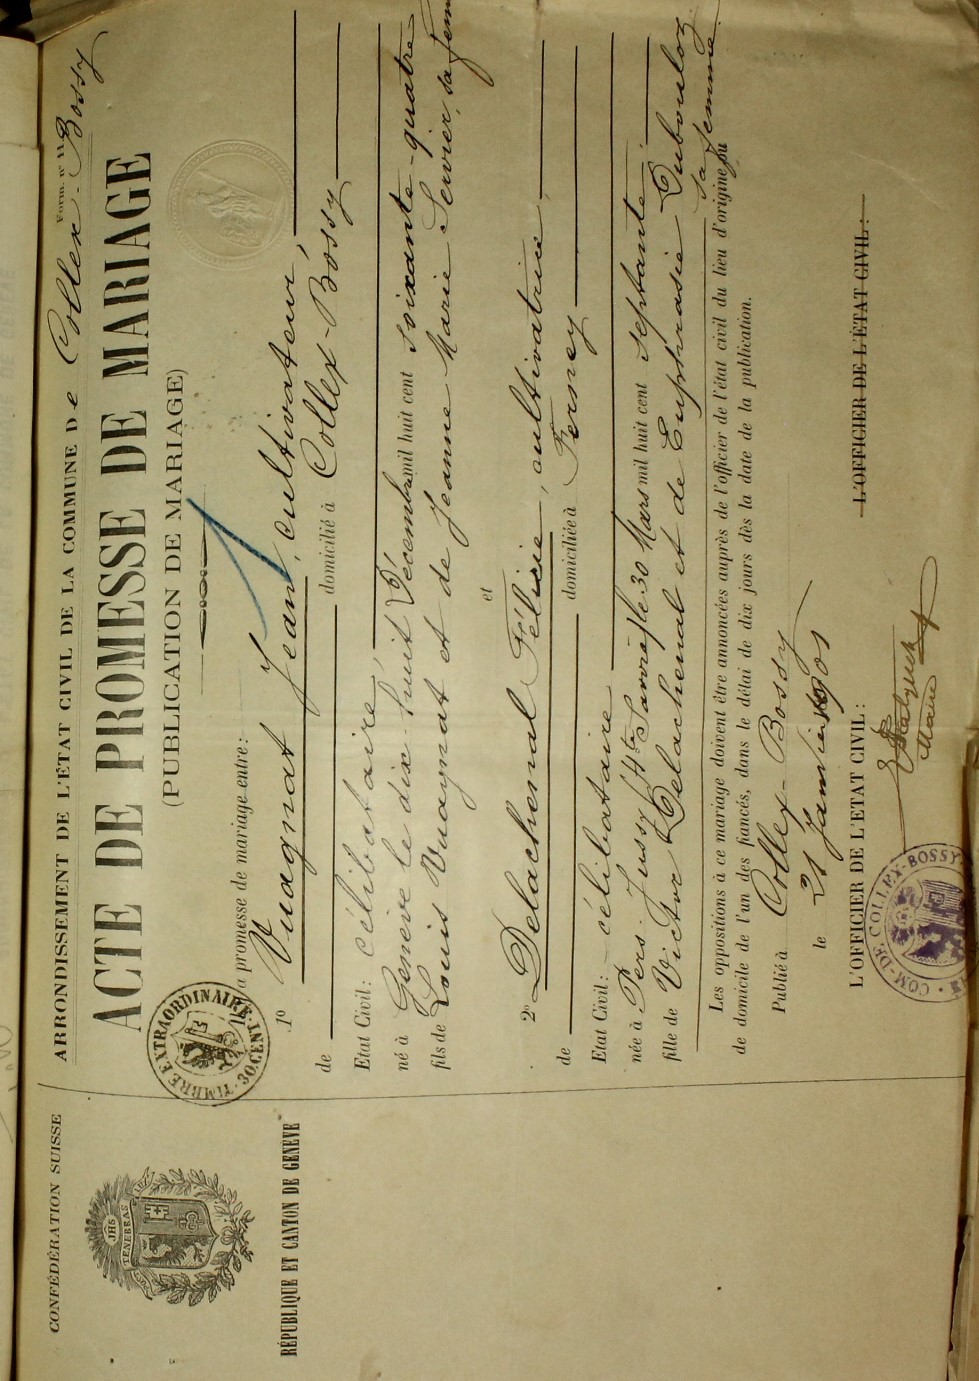 CONFÉDÉRATION SUISSE
JHS
TENEBRAS
RÉPUBLIQUE ET CANTON DE GENÈVE
Form. nº 11
ARRONDISSEMENT DE L'ÉTAT CIVIL DE LA COMMUNE De Collex-Bossy
ACTE DE PROMESSE DE MARIAGE
(PUBLICATION DE MARIAGE)
TIMBRE EXTRAORDINAIRE
30 CENT.
la promesse de mariage entre:
1º Vuagnat Jean, cultivateur,
de domicilié à Collex-Bossy
Etat Civil: célibataire,
né à Genève le dix-huit Décembre mil huit cent soixante-quatre
fils de Louis Vuagnat et de Jeanne Marie Servier, sa fem
et
2º Delachenal Félicie, cultivatrice,
de domiciliée à Ferney
Etat Civil: célibataire
née à Pers-Jussy (Hte Savoie) le 30 Mars mil huit cent septante
fille de Victor Delachenal et de Euphrasie Dubouloz
sa femme.
Les oppositions à ce mariage doivent être annoncées auprès de l'officier de l'état civil du lieu d'origine ou
de domicile de l'un des fiancés, dans le délai de dix jours dès la date de la publication.
Publié à Collex-Bossy
le 21 Janvier 1905
L'OFFICIER DE L'ETAT CIVIL: L'OFFICIER DE L'ÉTAT CIVIL:
Maire
COM·DE·COLLEX-BOSSY